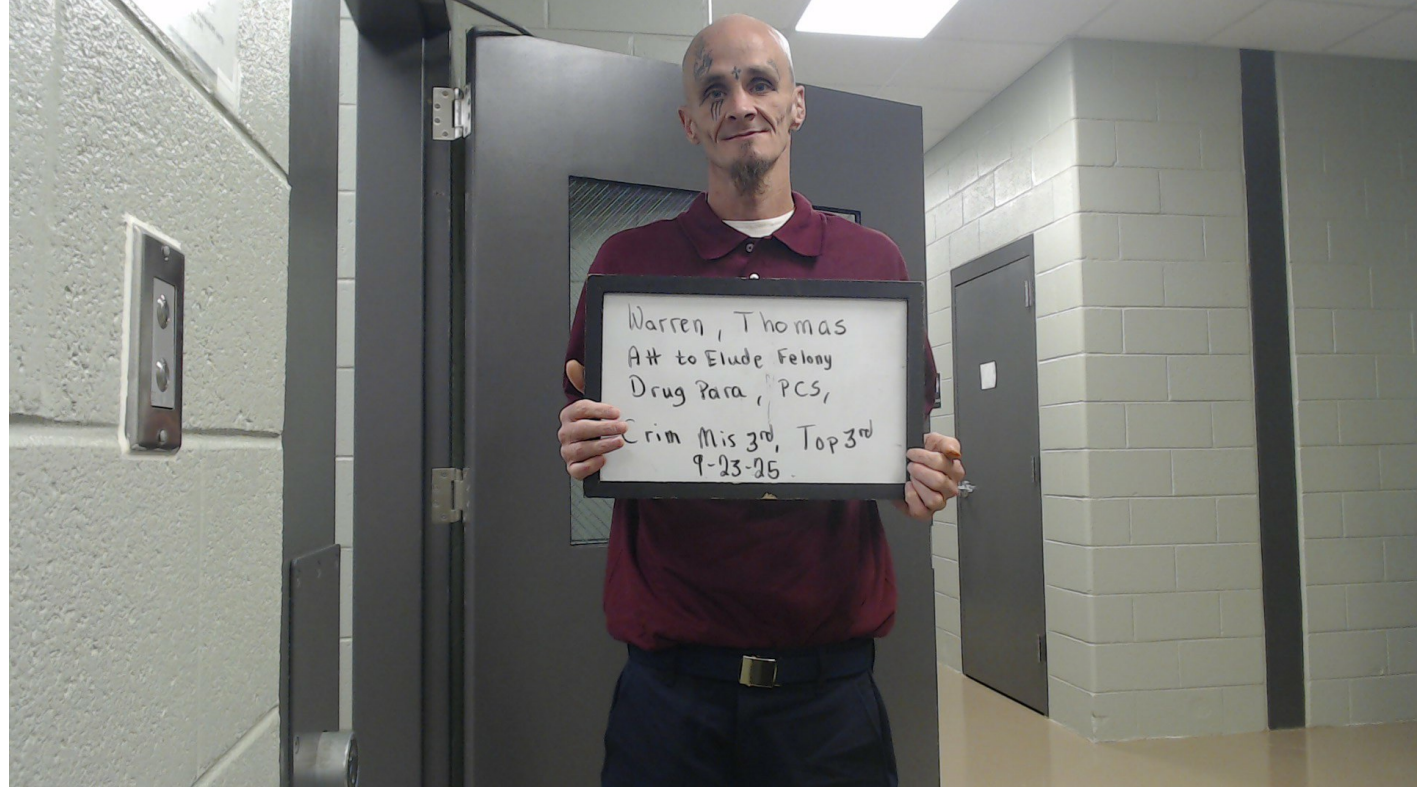 Warren, Thomas
Att to Elude Felony
Drug Para, PCS,
Crim Mis 3rd, Top 3rd
9-23-25